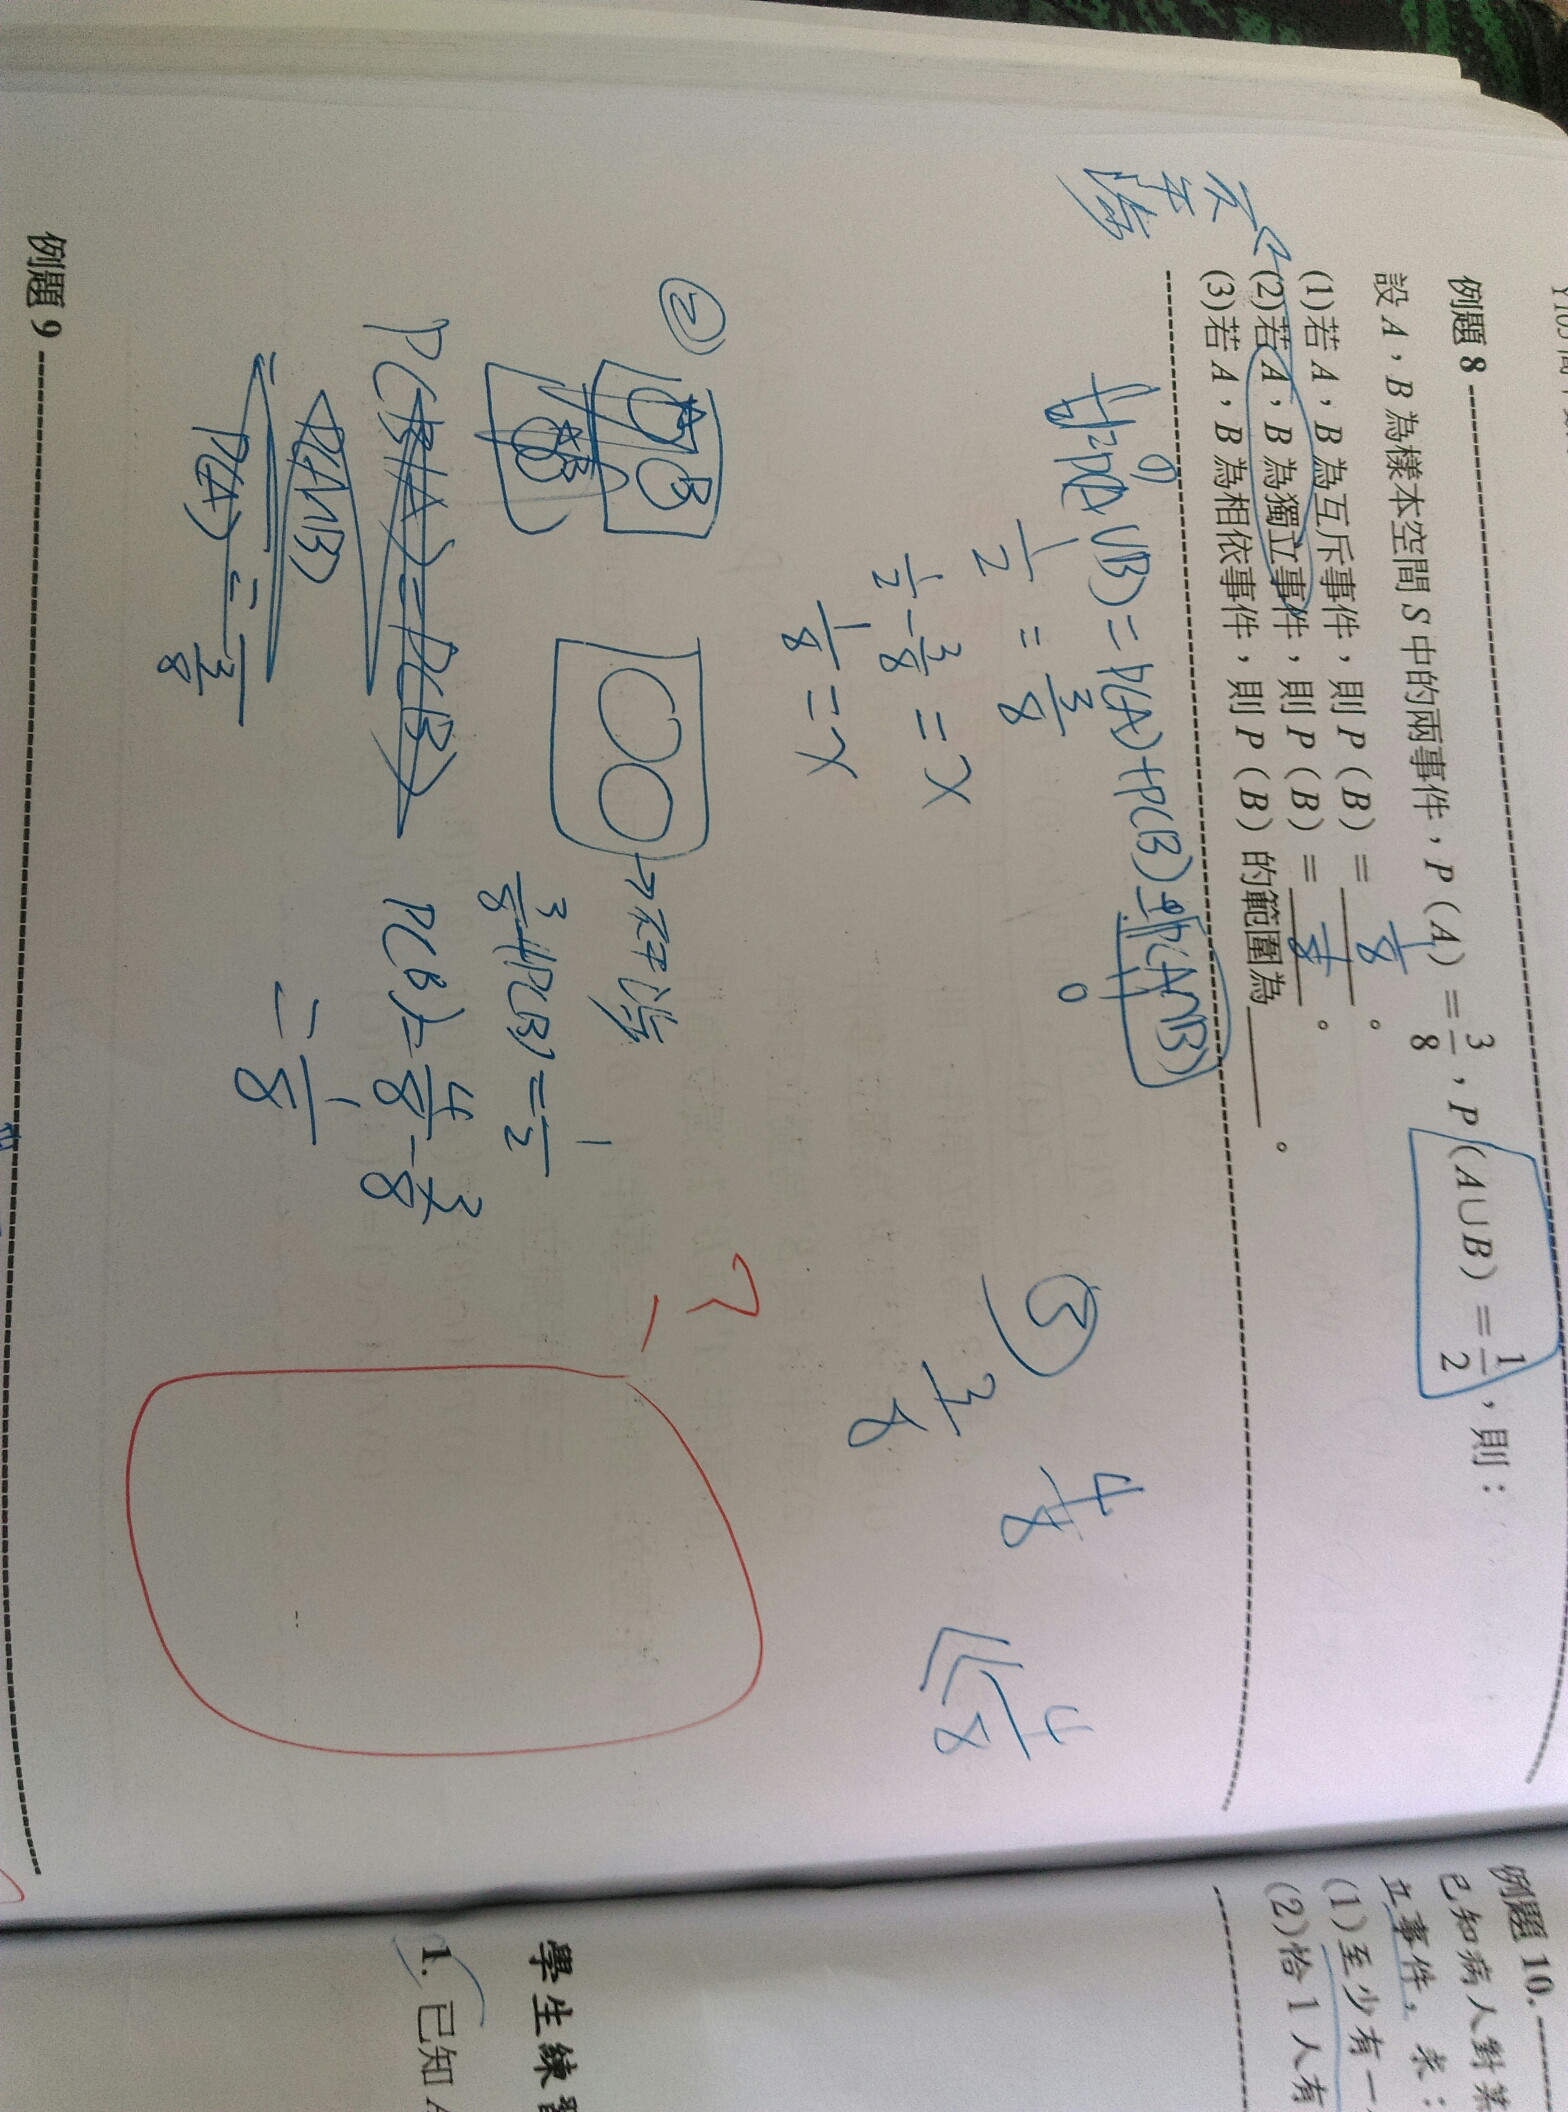 例題 8
設 A，B 為樣本空間 S 中的兩事件，P（A）＝3/8，P（A∪B）＝1/2，則：
(1)若 A，B 為互斥事件，則 P（B）＝ 1/8 。
(2)若 A，B 為獨立事件，則 P（B）＝ 。
(3)若 A，B 為相依事件，則 P（B）的範圍為 。
P(A∪B)=P(A)+P(B) P(A∩B)
0
1/2 = 3/8
1/2 - 3/8 = x
1/8 = x
②
A B
A B
3/8 + P(B) = 1/2
P(B|A)=P(B)
P(B)= 4/8 - 3/8
P(A∩B)
P(A) = 3/8
= 1/8
③
3/8
4/8
4/8
?
例題 9
例題 10.
已知病人對某
立事件，求：
(1)至少有一
(2)恰 1 人有
學生練習
1. 已知 A